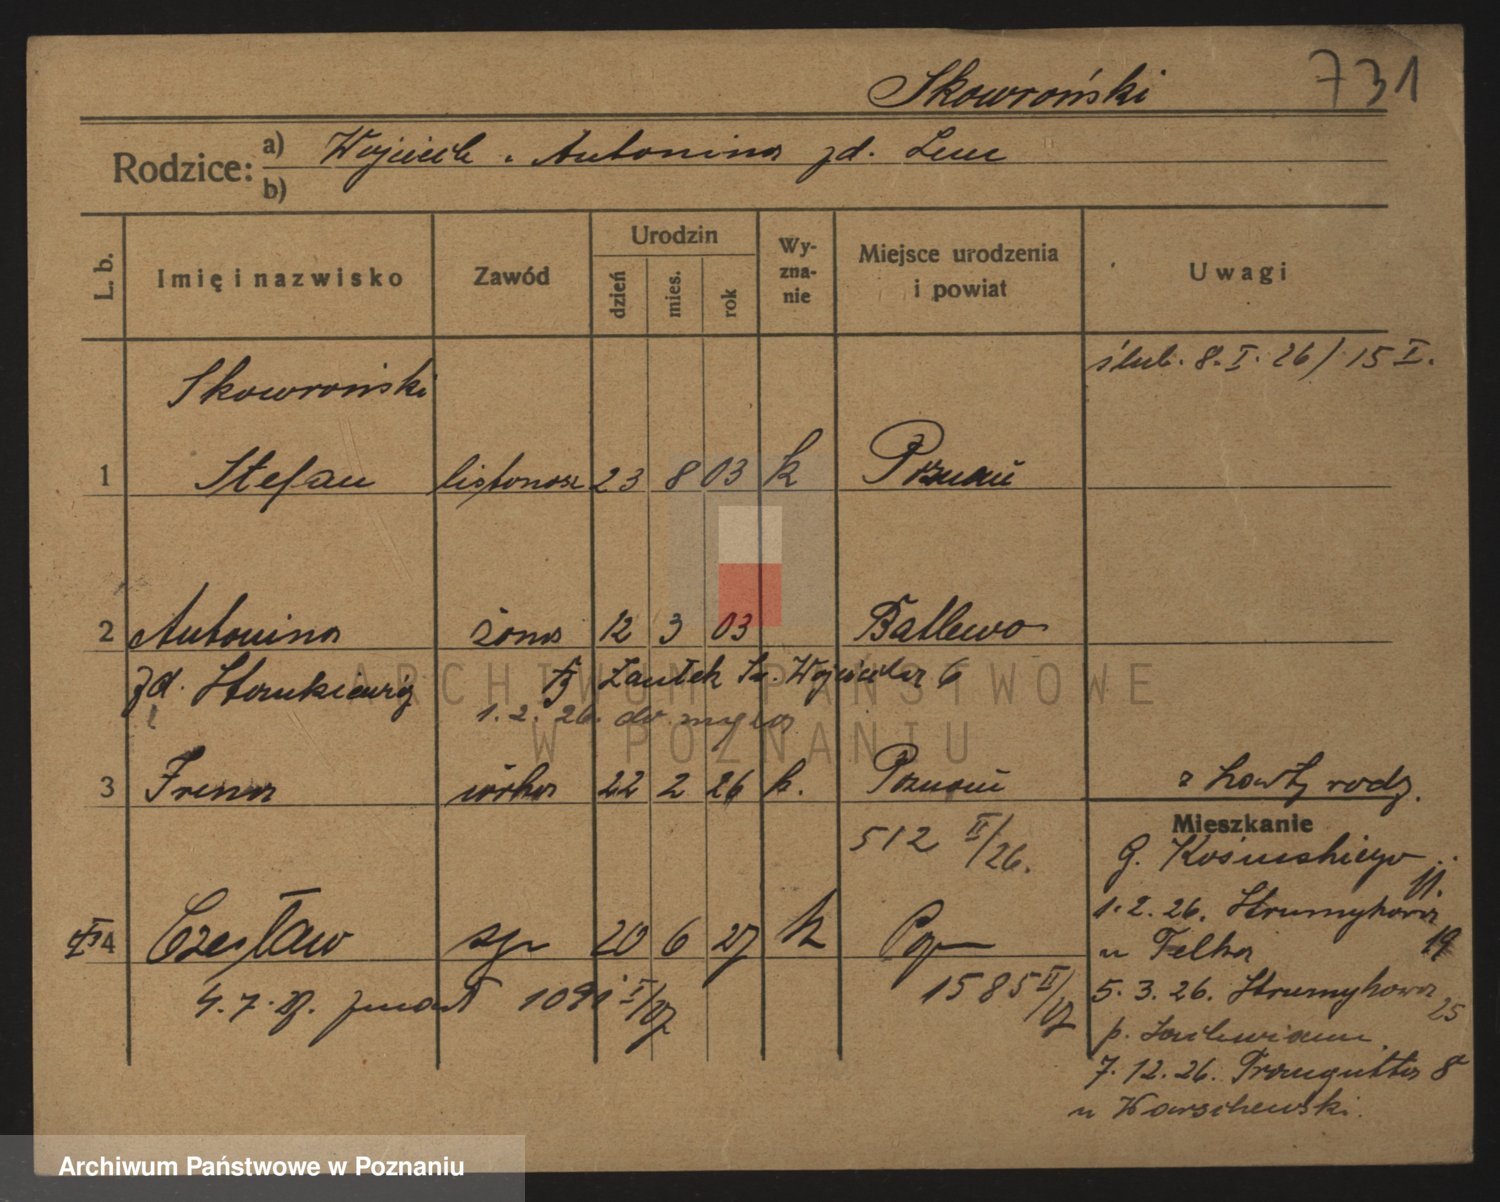 Skowroński 731
Rodzice: a) Wojciech i Antonina zd. Lenc
b)
L. b. Imię i nazwisko Zawód Urodzin dzień mies. rok Wyznanie Miejsce urodzenia i powiat Uwagi
ślub. 8. I. 26 / 15 I.
Skowroński
1 Stefan listonosz 23 8 03 k Poznań
2 Antonina żona 12 3 03 Batlewo
zd. Stankiewicz Zaułek Św. Wojciecha 6
1. 2. 26. do męża
3 Irena córka 22 2 26 k. Poznań z karty rodz.
512 II/26.
Mieszkanie
G. Kosińskiego 11.
1. 2. 26. Strumykowa 19
u Felka
4 Czesław syn 20 6 27 k Pozn
4. 7. 27. zmarł 1091 I/27
1585 II/27
5. 3. 26. Strumykowa 25
p.
7. 12. 26. Traugutta 8
u Warschewski.
ARCHIWUM PAŃSTWOWE
W POZNANIU
Archiwum Państwowe w Poznaniu